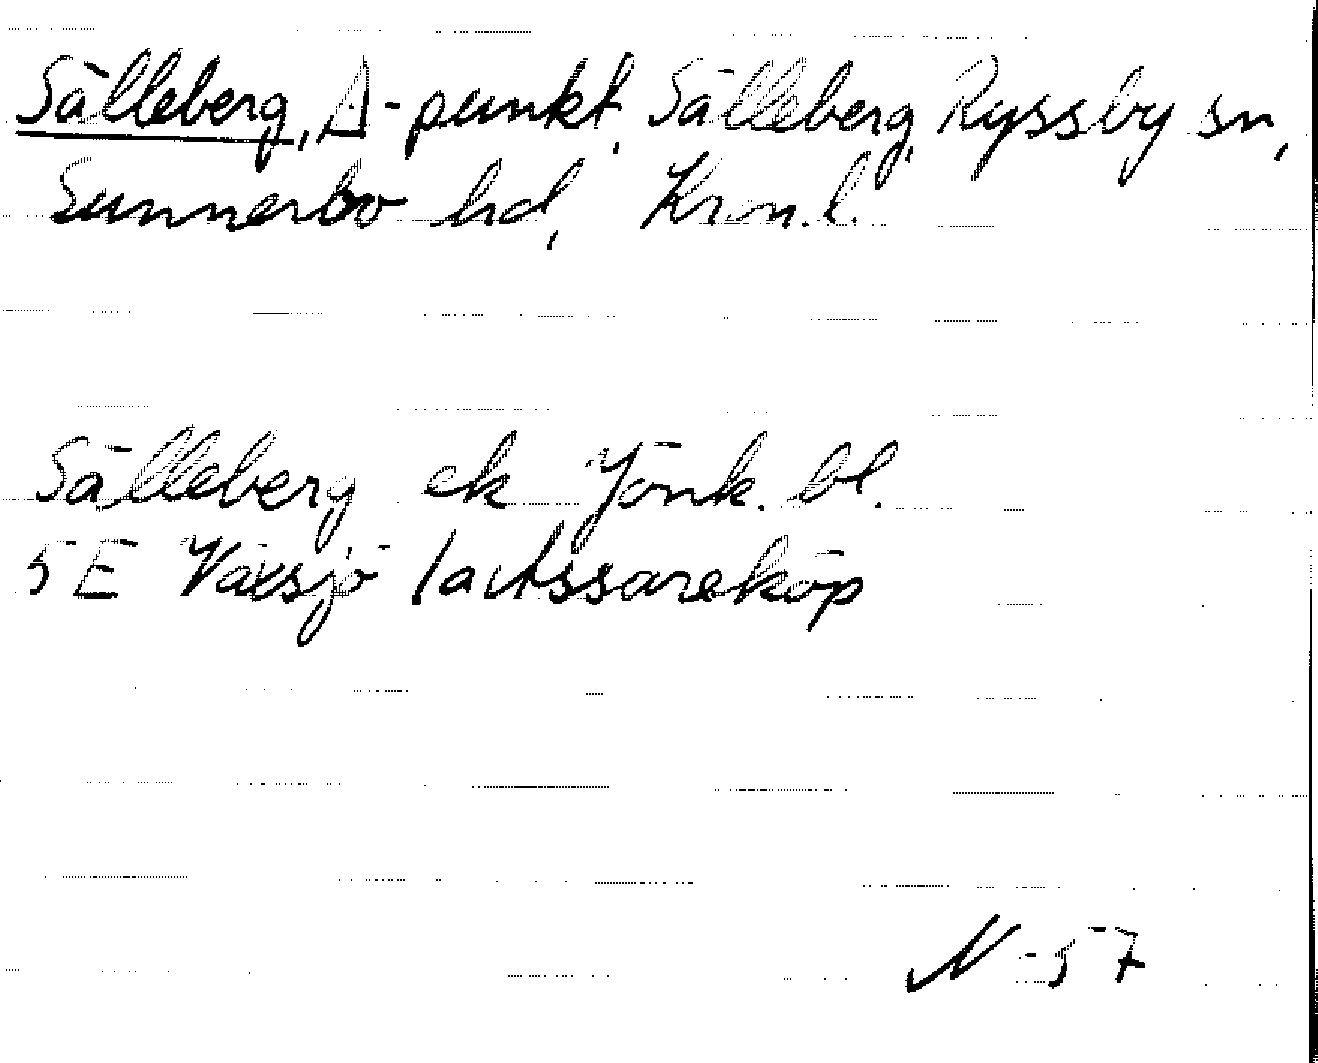 Sälleberg, Δ-punkt, Sälleberg, Ryssby sn,
Sunnerbo hd, Kron.l.
Sälleberg ek Jönk. bl.
5E Växsjö
N-57